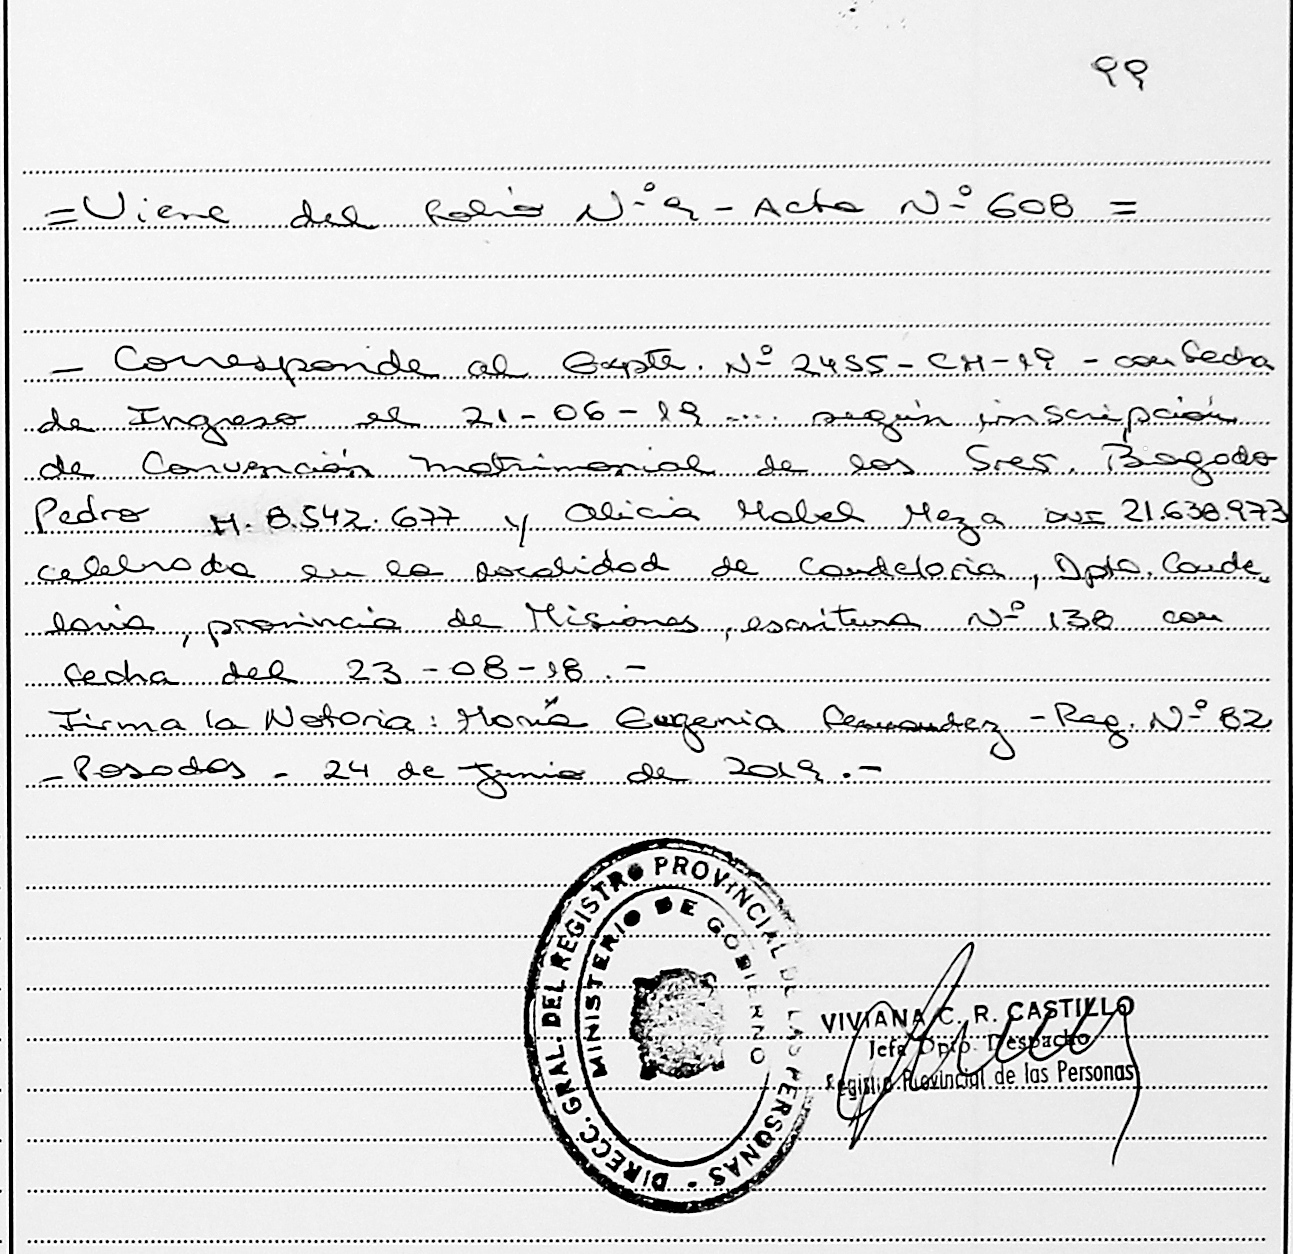 99
=Viene del folio Nº 9 - Acta Nº 608 =
- Corresponde al Expte. Nº 2455-CM-19 - con fecha
de Ingreso el 21-06-19 .... según inscripción
de Convención matrimonial de los Sres. Bogado
Pedro M. 8.542.677 y Alicia Mabel Meza DNI 21.638.973
celebrada en la localidad de Candelaria, Dpto. Cande-
laria, provincia de Misiones, escritura Nº 138 con
fecha del 23-08-18.-
Firma la Notaria: María Eugenia Fernandez - Reg. Nº 82
- Posadas - 24 de Junio de 2019.-
DIRECC. GRAL. DEL REGISTRO PROVINCIAL DE LAS PERSONAS -
MINISTERIO DE GOBIERNO
VIVIANA C. R. CASTILLO
Jefa Dpto. Despacho
Registro Provincial de las Personas